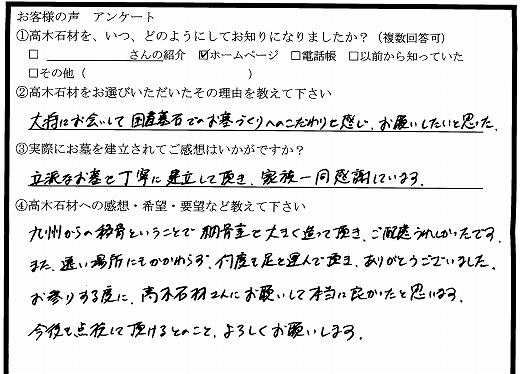 お客様の声 アンケート
①高木石材を、いつ、どのようにしてお知りになりましたか？（複数回答可）
□ さんの紹介 ☑ホームページ □電話帳 □以前から知っていた
□その他（ ）
②高木石材をお選びいただいたその理由を教えて下さい
大将にお会いして国産墓石でのお墓づくりへのこだわりを感じ、お願いしたいと思った。
③実際にお墓を建立されてご感想はいかがですか？
立派なお墓を丁寧に建立して頂き、家族一同感謝しています。
④高木石材への感想・希望・要望など教えて下さい
九州からの移骨ということで納骨室を大きく造って頂き、ご配慮うれしかったです。
また、遠い場所にもかかわらず、何度も足を運んで頂き、ありがとうございました。
お参りする度に、高木石材さんにお願いして本当に良かったと思います。
今後も点検して頂けるとのこと、よろしくお願いします。